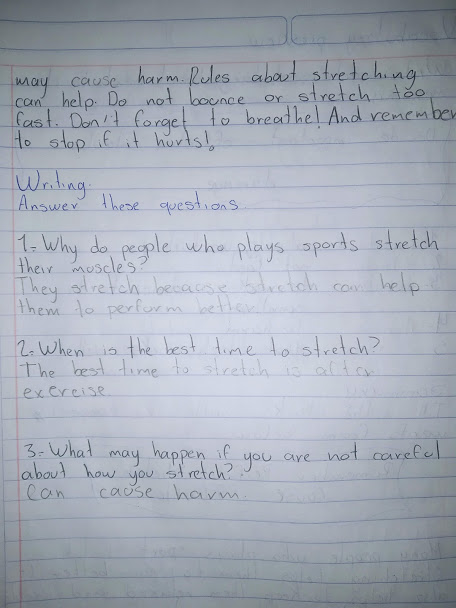 may cause harm. Rules about stretching
can help. Do not bounce or stretch too
fast. Don't forget to breathe! And remember
to stop if it hurts!
Writing.
Answer these questions
1= Why do people who plays sports stretch
their muscles?
They stretch because stretch can help
them to perform better
2= When is the best time to stretch?
The best time to stretch is after
exercise
3= What may happen if you are not careful
about how you stretch?
Can cause harm.